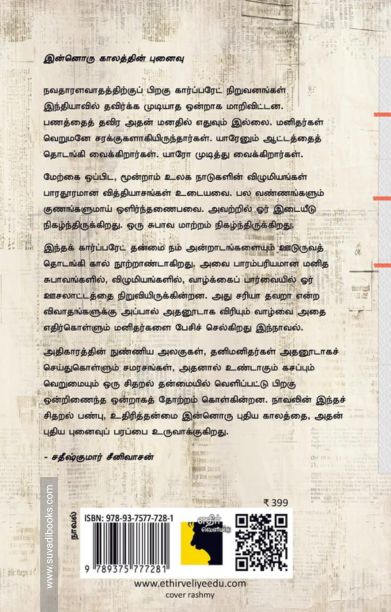 இன்னொரு காலத்தின் புனைவு
நவதாராளவாதத்திற்குப் பிறகு கார்ப்பரேட் நிறுவனங்கள்
இந்தியாவில் தவிர்க்க முடியாத ஒன்றாக மாறிவிட்டன.
பணத்தைத் தவிர அதன் மனதில் எதுவும் இல்லை. மனிதர்கள்
வெறுமனே சரக்குகளாகியிருந்தார்கள். யாரேனும் ஆட்டத்தைத்
தொடங்கி வைக்கிறார்கள். யாரோ முடித்து வைக்கிறார்கள்.
மேற்கை ஒப்பிட, மூன்றாம் உலக நாடுகளின் விழுமியங்கள்
பாரதூரமான வித்தியாசங்கள் உடையவை. பல வண்ணங்களும்
குணங்களுமாய் ஒளிர்ந்தணைபவை. அவற்றில் ஓர் இடையீடு
நிகழ்ந்திருக்கிறது. ஒரு சுபாவ மாற்றம் நிகழ்ந்திருக்கிறது.
இந்தக் கார்ப்பரேட் தன்மை நம் அன்றாடங்களையும் ஊடுருவத்
தொடங்கி கால் நூற்றாண்டாகிறது. அவை பாரம்பரியமான மனித
சுபாவங்களில், விழுமியங்களில், வாழ்க்கைப் பார்வையில் ஓர்
ஊசலாட்டத்தை நிறுவியிருக்கின்றன. அது சரியா தவறா என்ற
விவாதங்களுக்கு அப்பால் அதனூடாக விரியும் வாழ்வை அதை
எதிர்கொள்ளும் மனிதர்களை பேசிச் செல்கிறது இந்நாவல்.
அதிகாரத்தின் நுண்ணிய அலகுகள், தனிமனிதர்கள் அதனூடாகச்
செய்துகொள்ளும் சமரசங்கள், அதனால் உண்டாகும் கசப்பும்
வெறுமையும் ஒரு சிதறல் தன்மையில் வெளிப்பட்டு பிறகு
ஒன்றிணைந்த ஒன்றாகத் தோற்றம் கொள்கின்றன. நாவலின் இந்தச்
சிதறல் பண்பு, உதிரித்தன்மை இன்னொரு புதிய காலத்தை, அதன்
புதிய புனைவுப் பரப்பை உருவாக்குகிறது.
- சதீஷ்குமார் சீனிவாசன்
www.suvadibooks.com
நாவல்
₹ 399
ISBN: 978-93-7577-728-1
9 789375 777281
எதிர்
வெளியீடு
www.ethirveliyeedu.com
cover rashmy